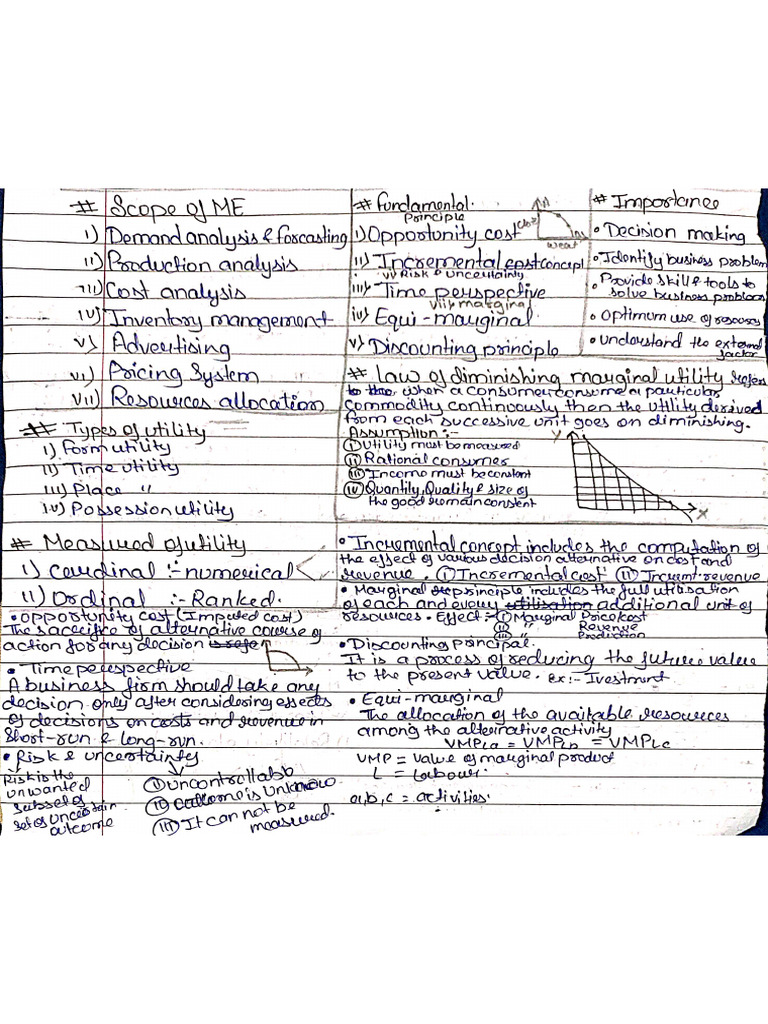 # Scope of ME
i) Demand analysis & forcasting
ii) Production analysis
iii) Cost analysis
iv) Inventory management
v) Advertising
vi) Pricing System
vii) Resources allocation
# Fundamental
Principle
i) Opportunity cost
weat
ii) Incremental cost concept
vi) Risk & uncertainty
iii) Time perspective
vii) marginal
iv) Equi-marginal
v) Discounting principle
# Importance
• Decision making
• Identify business problem
• Provide skill & tools to
solve business problem
• Optimum use of resources
• understand the external
factor
# Types of utility
i) Form utility
ii) Time utility
iii) Place "
iv) Possession utility
# Law of diminishing marginal utility refers
to the, when a consumer consume a particular
commodity continuously then the utility derived
from each successive unit goes on diminishing.
Assumption :-
(i) Utility must be measured
(ii) Rational consumer
(iii) Income must be constant
(iv) Quantity, Quality & size of
the good remain constent
Y
X
# Measured of utility
i) Cardinal :- numerical
ii) Ordinal :- Ranked.
• Opportunity cost (Imputed cost)
The sacrifice of alternative course of
action for any decision is refe
• Time perspective
A business firm should take any
decision only after considering effects
of decisions on costs and revenue in
Short-run & long-run.
• Risk & uncertainty
Risk is the
unwanted
subset of
set of uncertain
outcome
(i) uncontrollabb
(ii) outcome is unknown.
(iii) It can not be
measured.
• Incremental concept includes the computation of
the effect of various decision alternative on cost and
revenue. (i) Incremental cost (ii) Increment revenue
• Marginal principle includes the full utilisation
of each and every utilisation additional unit of
resources. Effect :- (i) Marginal Price/cost
(ii) " Revenue
(iii) " Production
• Discounting principal.
It is a process of reducing the future value
to the present value. Ex:- Ivestment
• Equi-marginal
The allocation of the available resources
among the alternative activity
VMPLa = VMPLb = VMPLc
VMP = value of marginal product
L = Labour.
a,b,c = activities.